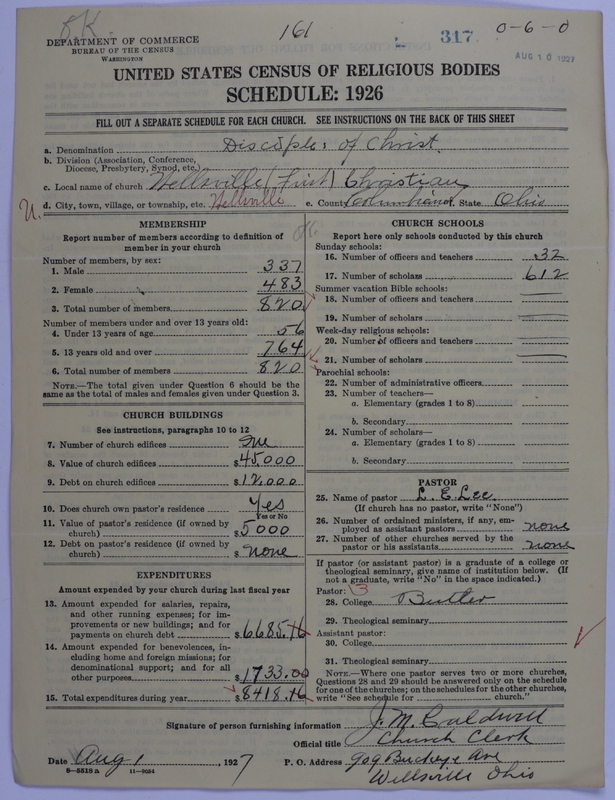 O.K.
161
317
0-6-0
AUG 10 1927
DEPARTMENT OF COMMERCE
BUREAU OF THE CENSUS
WASHINGTON
UNITED STATES CENSUS OF RELIGIOUS BODIES
SCHEDULE: 1926
FILL OUT A SEPARATE SCHEDULE FOR EACH CHURCH. SEE INSTRUCTIONS ON THE BACK OF THIS SHEET
a. Denomination Disciples of Christ.
b. Division (Association, Conference,
Diocese, Presbytery, Synod, etc.)
c. Local name of church Wellsville (First) Christian
U. d. City, town, village, or township, etc. Wellsville e. County Columbiana State Ohio
MEMBERSHIP
Report number of members according to definition of
member in your church
Number of members, by sex:
1. Male 337
2. Female 483
3. Total number of members 820
Number of members under and over 13 years old:
4. Under 13 years of age 56
5. 13 years old and over 764
6. Total number of members 820
NOTE.—The total given under Question 6 should be
the same as the total of males and females given under Question 3.
CHURCH BUILDINGS
See instructions, paragraphs 10 to 12
7. Number of church edifices One
8. Value of church edifices $45,000
9. Debt on church edifices $12,000
10. Does church own pastor's residence Yes
Yes or No
11. Value of pastor's residence (if owned by
church) $5000
12. Debt on pastor's residence (if owned by
church) $none
EXPENDITURES
Amount expended by your church during last fiscal year
13. Amount expended for salaries, repairs,
and other running expenses; for im-
provements or new buildings; and for
payments on church debt $6685.16
14. Amount expended for benevolences, in-
cluding home and foreign missions; for
denominational support; and for all
other purposes $1733.00
15. Total expenditures during year $8418.16
CHURCH SCHOOLS
Report here only schools conducted by this church
Sunday schools:
16. Number of officers and teachers 32
17. Number of scholars 612
Summer vacation Bible schools:
18. Number of officers and teachers
19. Number of scholars
Week-day religious schools:
20. Number of officers and teachers
21. Number of scholars
Parochial schools:
22. Number of administrative officers
23. Number of teachers—
a. Elementary (grades 1 to 8)
b. Secondary
24. Number of scholars—
a. Elementary (grades 1 to 8)
b. Secondary
PASTOR
25. Name of pastor L. E. Lee
(If church has no pastor, write "None")
26. Number of ordained ministers, if any, em-
ployed as assistant pastors none
27. Number of other churches served by the
pastor or his assistants none
If pastor (or assistant pastor) is a graduate of a college or
theological seminary, give name of institution below. (If
not a graduate, write "No" in the space indicated.)
Pastor: 3
28. College Butler
29. Theological seminary
Assistant pastor:
30. College
31. Theological seminary
NOTE.—Where one pastor serves two or more churches,
Questions 28 and 29 should be answered only on the schedule
for one of the churches; on the schedules for the other churches,
write "See schedule for church."
Signature of person furnishing information J. M. Caldwell
Official title Church Clerk
Date Aug 1, 1927 P. O. Address 909 Buckeye Ave
8—5518 a 11—9054 Wellsville Ohio